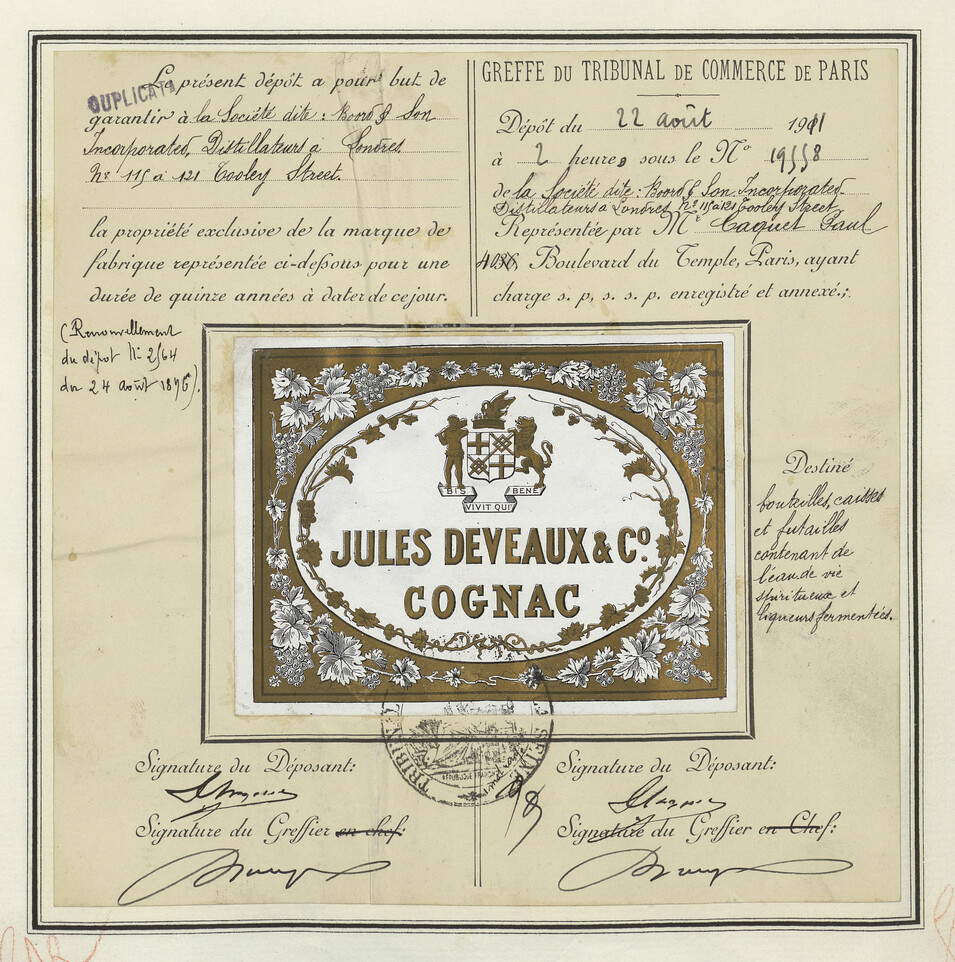 Le présent dépôt a pour but de
DUPLICATA
garantir à la Société dite: Boord & Son
Incorporated, Distillateurs à Londres
Nos 115 à 121 Tooley Street.
la propriété exclusive de la marque de
fabrique représentée ci-dessous pour une
durée de quinze années à dater de ce jour.
(Renouvellement
du dépôt No 2564
du 24 août 1896).
GREFFE DU TRIBUNAL DE COMMERCE DE PARIS
Dépôt du 22 août 1911
à 2 heures sous le No 19558
de la Société dite: Boord & Son Incorporated
Distillateurs à Londres Nos 115 à 121 Tooley Street
Représentée par Me Caquet Paul
Boulevard du Temple, Paris, ayant
charge s. p, s. s. p. enregistré et annexé.;
BIS BENE
VIVIT QUI
JULES DEVEAUX & Co.
COGNAC
Destiné
bouteilles, caisses
et futailles
contenant de
l'eau de vie
spiritueux et
liqueurs fermentées.
TRIBUNAL SEINE
RÉPUBLIQUE FRANÇAISE
Signature du Déposant:
Signature du Greffier en chef:
Signature du Déposant:
Signature du Greffier en Chef: